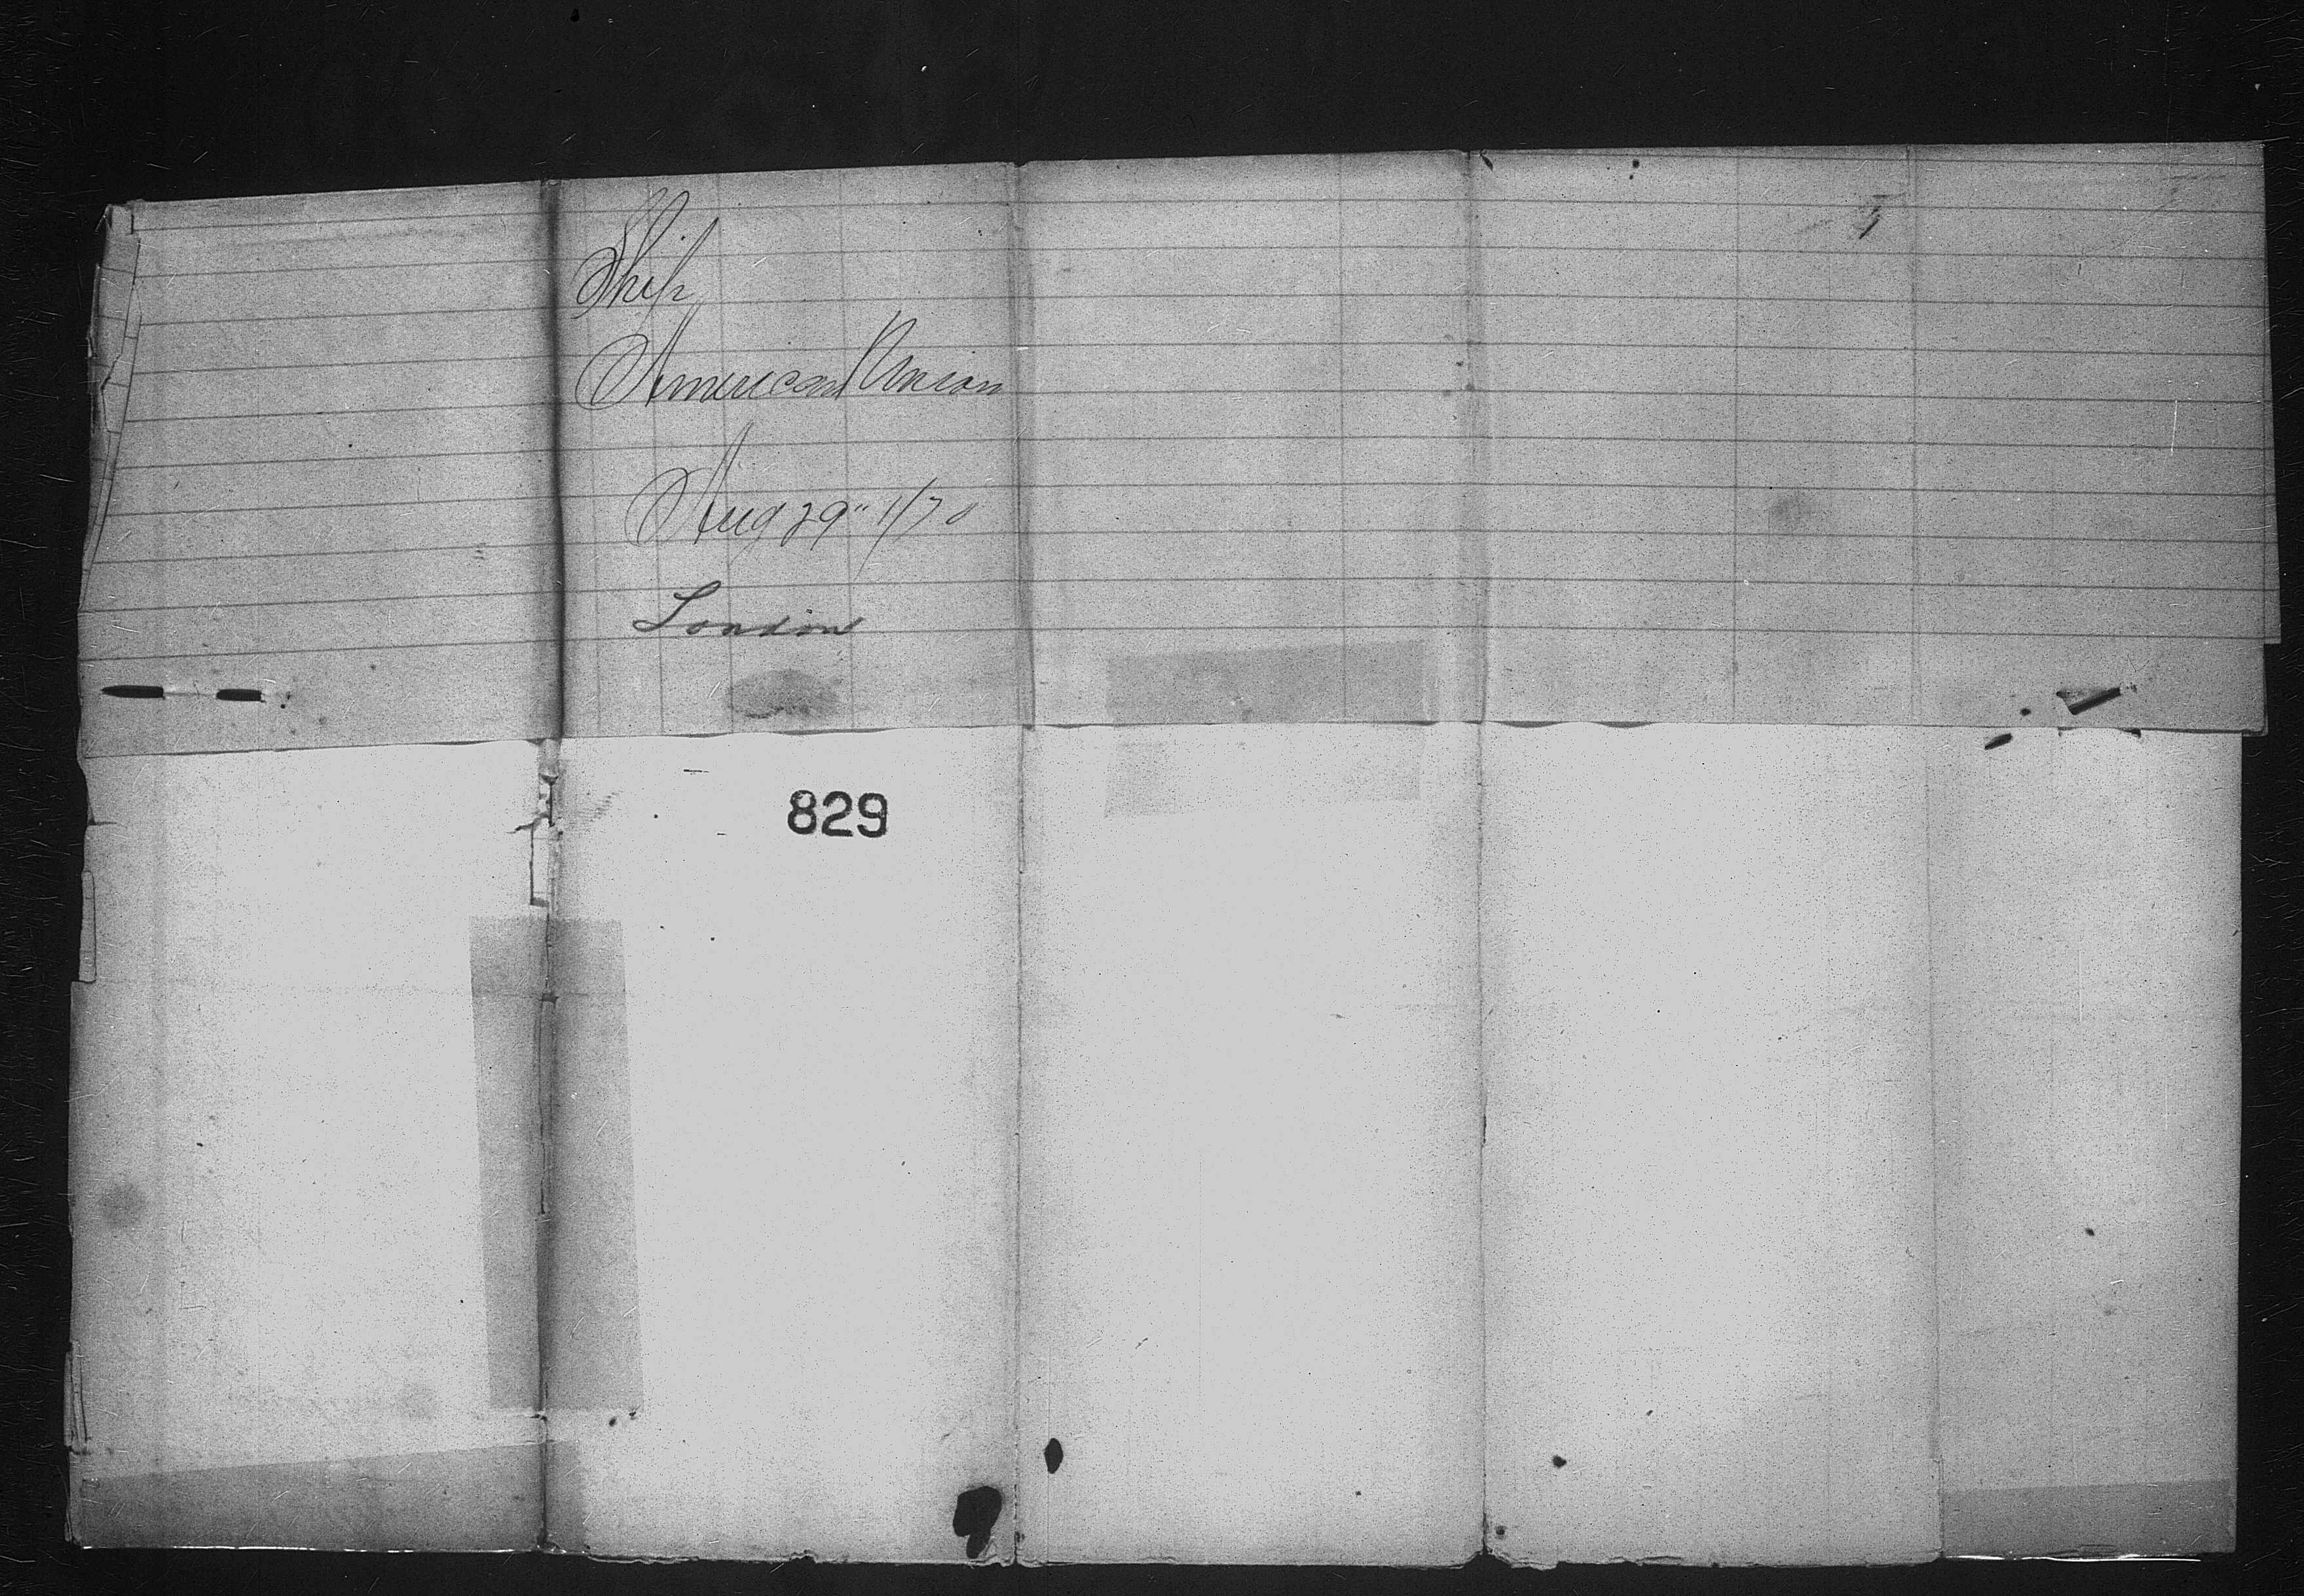 Ship
American Union
Aug 29" 1/70
London
829